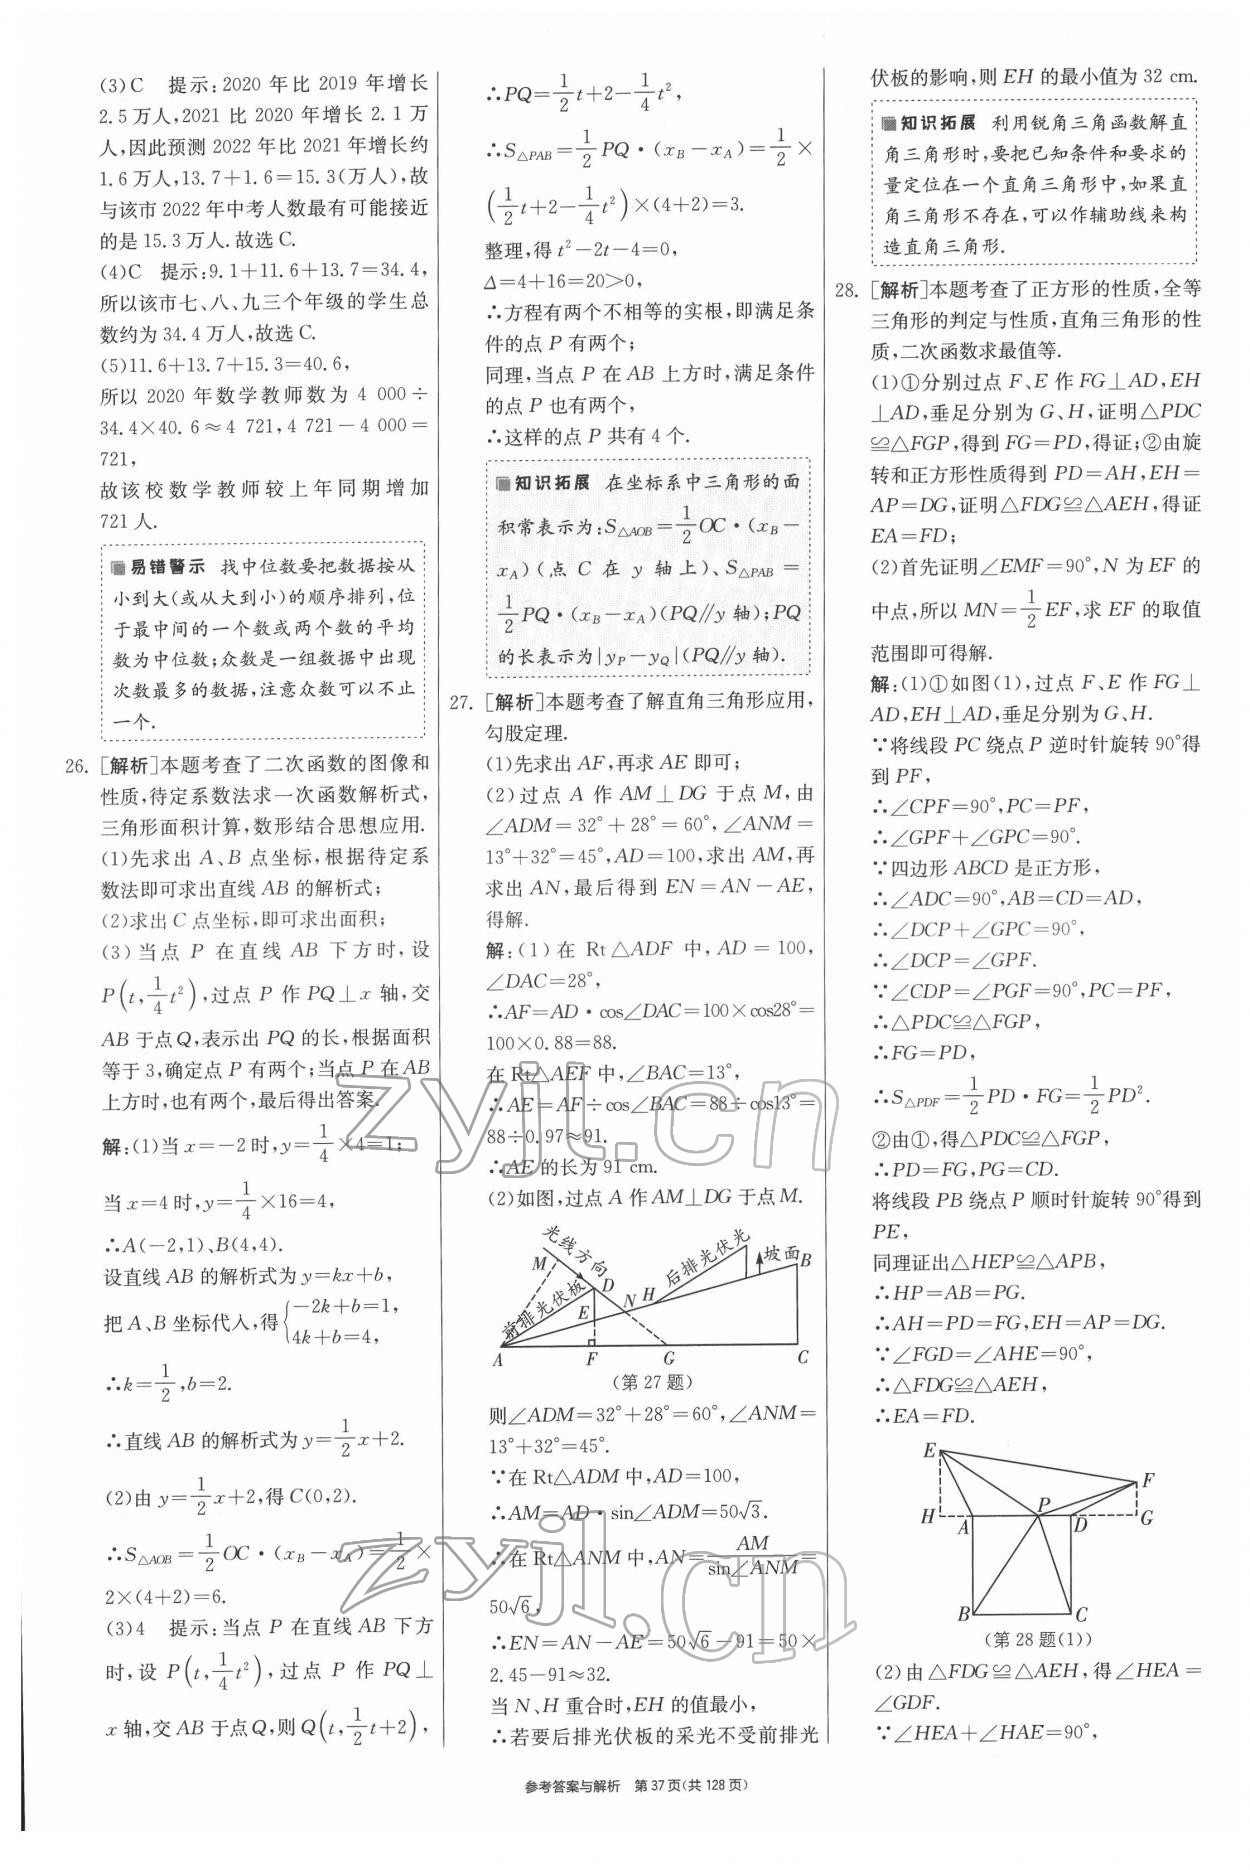 (3)C 提示:2020 年比 2019 年增长
2.5万人,2021 比 2020 年增长 2.1 万
人,因此预测 2022 年比 2021 年增长约
1.6万人,13.7+1.6=15.3(万人),故
与该市2022年中考人数最有可能接近
的是 15.3 万人.故选C.
(4)C 提示:9.1+11.6+13.7=34.4,
所以该市七、八、九三个年级的学生总
数约为34.4万人,故选C.
(5)11.6+13.7+15.3=40.6,
所以 2020 年数学教师数为 4 000÷
34.4×40.6≈4 721,4 721-4 000=
721,
故该校数学教师较上年同期增加
721人.
易错警示 找中位数要把数据按从
小到大(或从大到小)的顺序排列,位
于最中间的一个数或两个数的平均
数为中位数;众数是一组数据中出现
次数最多的数据,注意众数可以不止
一个.
26. [解析]本题考查了二次函数的图像和
性质,待定系数法求一次函数解析式,
三角形面积计算,数形结合思想应用.
(1)先求出 A、B 点坐标,根据待定系
数法即可求出直线 AB 的解析式;
(2)求出C点坐标,即可求出面积;
(3)当点 P 在直线 AB 下方时,设
P(t,1/4t²),过点 P 作 PQ⊥x 轴,交
AB于点Q,表示出 PQ 的长,根据面积
等于3,确定点 P 有两个;当点 P 在AB
上方时,也有两个,最后得出答案.
解:(1)当x=-2时,y=1/4×4=1;
当x=4时,y=1/4×16=4,
∴A(-2,1)、B(4,4).
设直线 AB 的解析式为y=kx+b,
把A、B坐标代入,得{-2k+b=1,
4k+b=4,
∴k=1/2,b=2.
∴直线 AB 的解析式为y=1/2x+2.
(2)由y=1/2x+2,得C(0,2).
∴S△AOB=1/2OC·(xB-xA)=1/2×
2×(4+2)=6.
(3)4 提示:当点 P 在直线 AB 下方
时,设 P(t,1/4t²),过点 P 作 PQ⊥
x轴,交AB于点Q,则Q(t,1/2t+2),
∴PQ=1/2t+2-1/4t²,
∴S△PAB=1/2PQ·(xB-xA)=1/2×
(1/2t+2-1/4t²)×(4+2)=3.
整理,得t²-2t-4=0,
Δ=4+16=20>0,
∴方程有两个不相等的实根,即满足条
件的点 P 有两个;
同理,当点 P 在 AB 上方时,满足条件
的点 P 也有两个,
∴这样的点 P 共有 4 个.
知识拓展 在坐标系中三角形的面
积常表示为:S△AOB=1/2OC·(xB-
xA)(点 C 在 y 轴上)、S△PAB=
1/2PQ·(xB-xA)(PQ∥y轴);PQ
的长表示为|yP-yQ|(PQ∥y轴).
27. [解析]本题考查了解直角三角形应用,
勾股定理.
(1)先求出 AF,再求 AE 即可;
(2)过点 A 作 AM⊥DG 于点 M,由
∠ADM=32°+28°=60°,∠ANM=
13°+32°=45°,AD=100,求出 AM,再
求出 AN,最后得到 EN=AN-AE,
得解.
解:(1)在 Rt△ADF 中,AD=100,
∠DAC=28°,
∴AF=AD·cos∠DAC=100×cos28°=
100×0.88=88.
在Rt△AEF中,∠BAC=13°,
∴AE=AF÷cos∠BAC=88÷cos13°=
88÷0.97≈91.
∴AE的长为91 cm.
(2)如图,过点A作AM⊥DG于点M.
光线方向
后排光伏光
坡面
前排光伏板
M D E N H B
A F G C
(第27题)
则∠ADM=32°+28°=60°,∠ANM=
13°+32°=45°.
∵在Rt△ADM中,AD=100,
∴AM=AD·sin∠ADM=50√3.
∴在Rt△ANM中,AN=AM/sin∠ANM=
50√6,
∴EN=AN-AE=50√6-91=50×
2.45-91≈32.
当 N、H 重合时,EH 的值最小,
∴若要后排光伏板的采光不受前排光
伏板的影响,则 EH 的最小值为 32 cm.
知识拓展 利用锐角三角函数解直
角三角形时,要把已知条件和要求的
量定位在一个直角三角形中,如果直
角三角形不存在,可以作辅助线来构
造直角三角形.
28. [解析]本题考查了正方形的性质,全等
三角形的判定与性质,直角三角形的性
质,二次函数求最值等.
(1)①分别过点 F、E 作 FG⊥AD,EH
⊥AD,垂足分别为 G、H,证明△PDC
≌△FGP,得到 FG=PD,得证;②由旋
转和正方形性质得到 PD=AH,EH=
AP=DG,证明△FDG≌△AEH,得证
EA=FD;
(2)首先证明∠EMF=90°,N 为 EF 的
中点,所以 MN=1/2EF,求 EF 的取值
范围即可得解.
解:(1)①如图(1),过点 F、E 作 FG⊥
AD,EH⊥AD,垂足分别为G、H.
∵将线段 PC 绕点 P 逆时针旋转 90°得
到 PF,
∴∠CPF=90°,PC=PF,
∴∠GPF+∠GPC=90°.
∵四边形 ABCD 是正方形,
∴∠ADC=90°,AB=CD=AD,
∴∠DCP+∠GPC=90°,
∴∠DCP=∠GPF.
∵∠CDP=∠PGF=90°,PC=PF,
∴△PDC≌△FGP,
∴FG=PD,
∴S△PDF=1/2PD·FG=1/2PD².
②由①,得△PDC≌△FGP,
∴PD=FG,PG=CD.
将线段 PB 绕点 P 顺时针旋转 90°得到
PE,
同理证出△HEP≌△APB,
∴HP=AB=PG.
∴AH=PD=FG,EH=AP=DG.
∵∠FGD=∠AHE=90°,
∴△FDG≌△AEH,
∴EA=FD.
E F
H A P D G
B C
(第28题(1))
(2)由△FDG≌△AEH,得∠HEA=
∠GDF.
∵∠HEA+∠HAE=90°,
参考答案与解析 第37页(共128页)
zyjl.cn
zyjl.cn